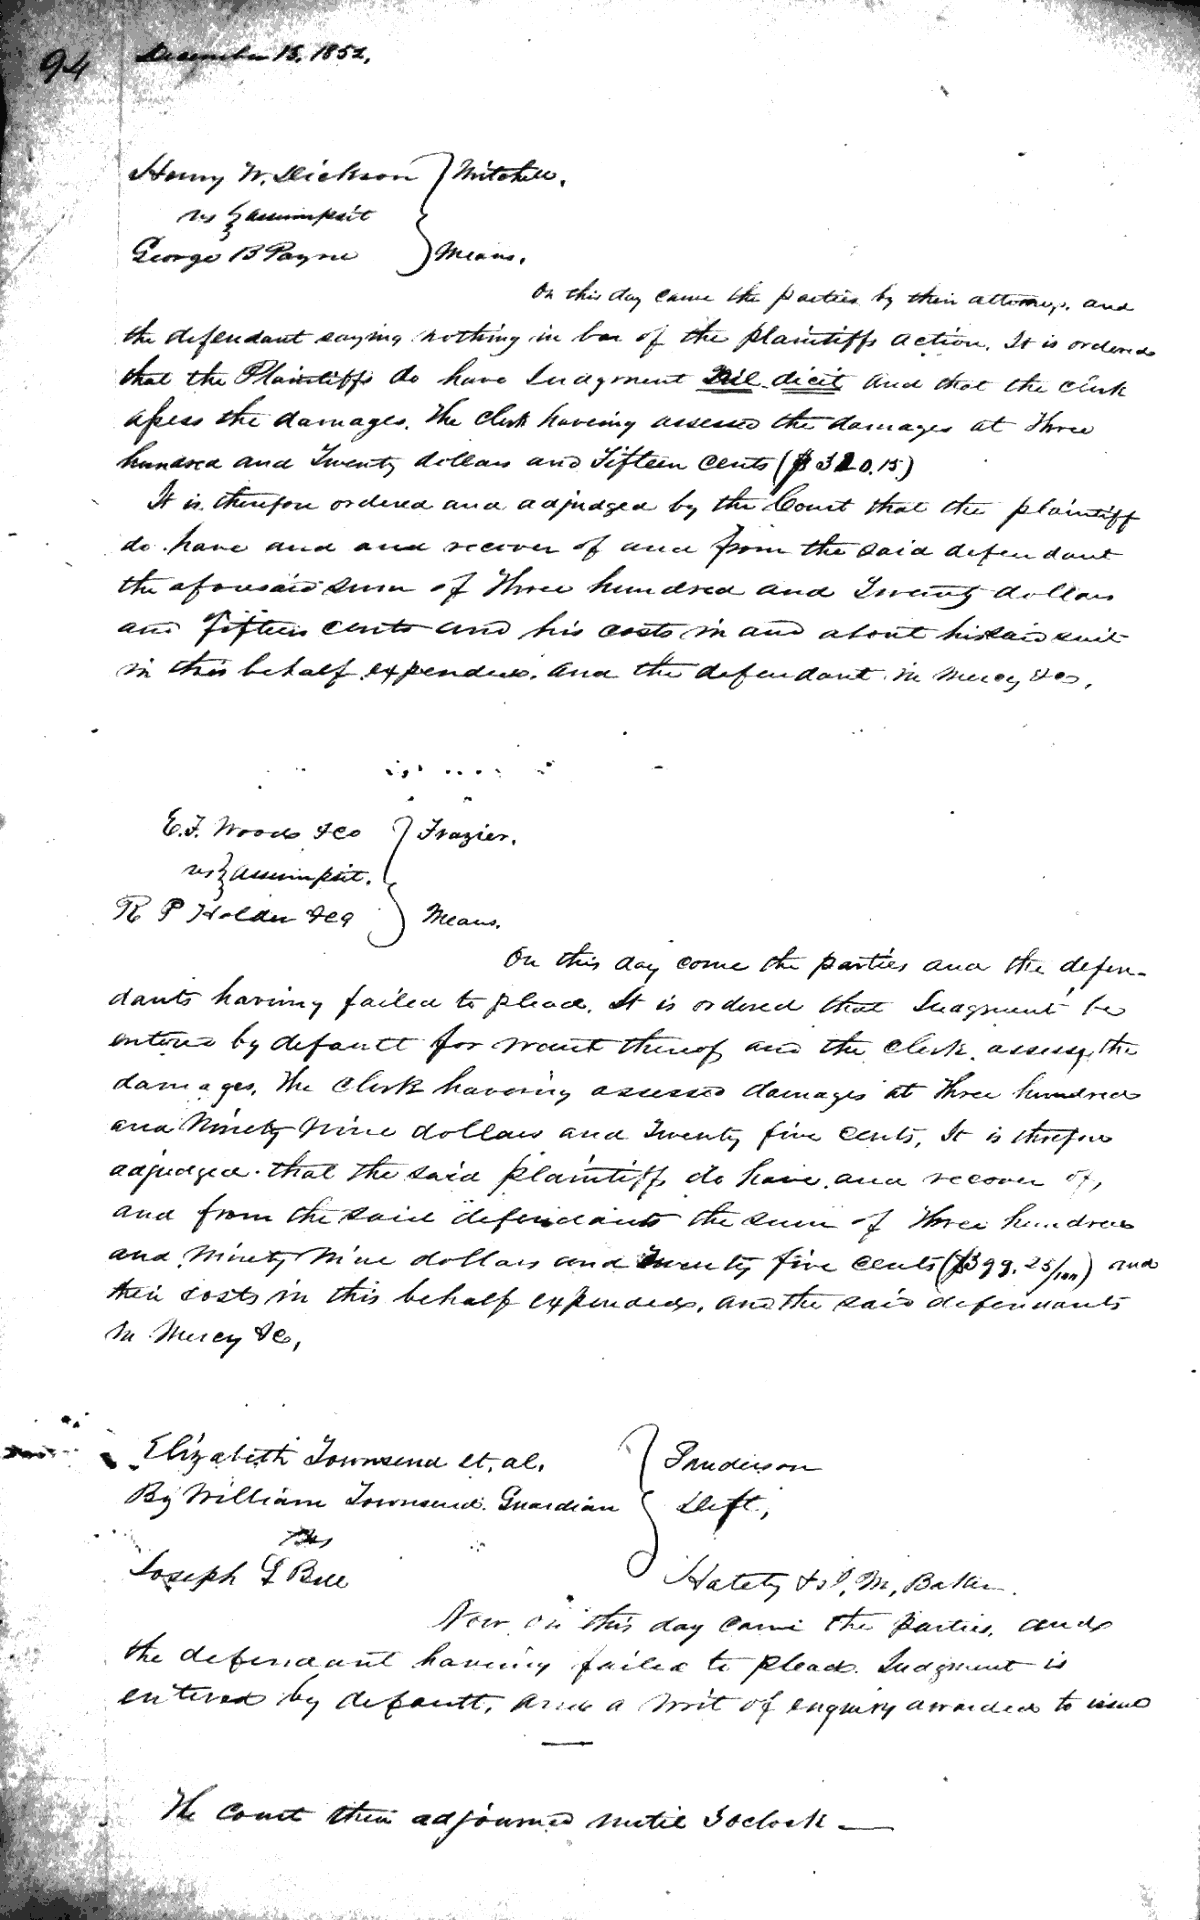 94 December 15, 1852,
Henry W. Dickson } Mitchell,
vs } assumpsit
George B Payne } Means.
On this day came the parties by their attorneys, and
the defendant saying nothing in bar of the plaintiffs action. It is ordered
that the Plaintiffs do have Judgment Nil dicit and that the clerk
assess the damages. The Clerk having assessed the damages at Three
hundred and Twenty dollars and Fifteen cents ($320.15)
It is therefore ordered and adjudged by the Court that the plaintiff
do have and and recover of and from the said defendant
the aforesaid sum of Three hundred and Twenty dollars
and fifteen cents and his costs in and about his said suit
in this behalf expended. and the defendant in mercy &c,
E.F. Woods &Co } Frazier.
vs } assumpsit.
R P Holder &Co } Means.
On this day come the parties and the defen-
dants having failed to plead. It is ordered that Judgment be
entered by default for want thereof and the clerk assess the
damages. The Clerk having assessed damages at Three hundred
and Ninety Nine dollars and Twenty five cents. It is therefore
adjudged that the said plaintiffs do have and recover of,
and from the said defendants the sum of Three hundred
and Ninety Nine dollars and Twenty five cents ($399.25/100) and
their costs in this behalf expended. and the said defendants
in Mercy &c,
Elizabeth Townsend et. al.
By William Townsend Guardian } Deft,
vs
Joseph Bell
M, Baker.
Now on this day came the parties, and
the defendant having failed to plead. Judgment is
entered by default, and a writ of enquiry awarded to issue
The Court then adjourned until 3 oclock —